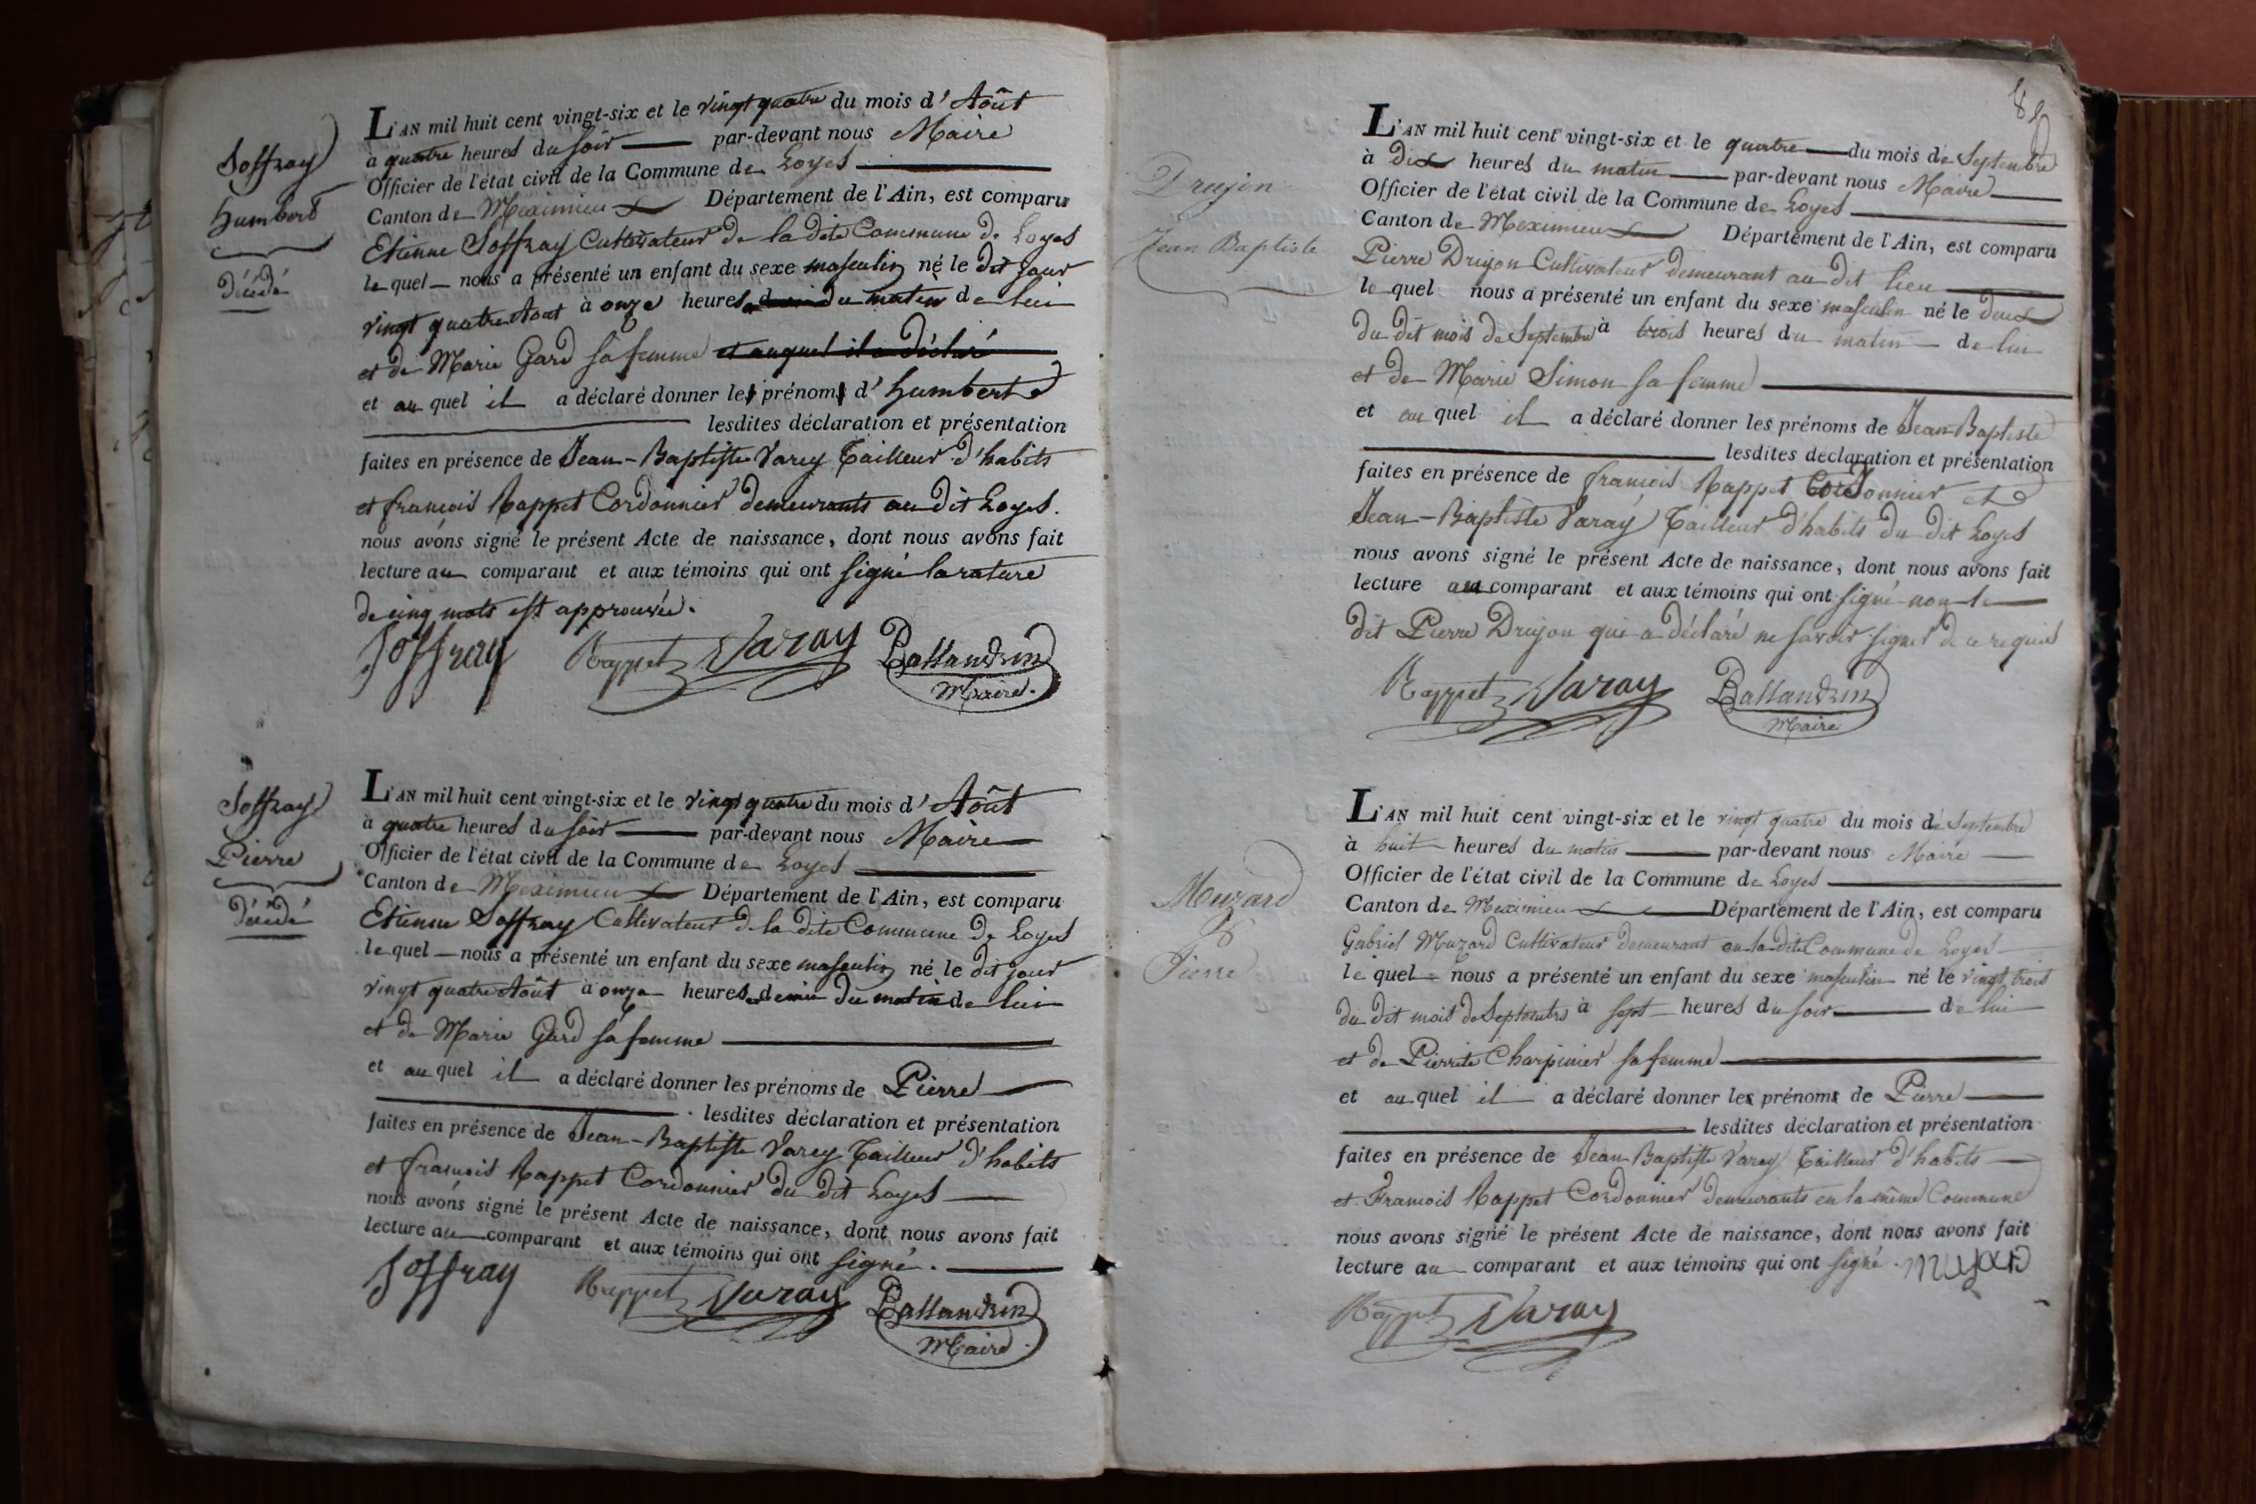 Soffray
Humbert
décédé
L'AN mil huit cent vingt-six et le vingt quatre du mois d'Août
à quatre heures du soir par-devant nous Maire
Officier de l'état civil de la Commune de Loyes
Canton de Meximieux Département de l'Ain, est comparu
Etienne Soffray Cultivateur de la dite Commune de Loyes
lequel nous a présenté un enfant du sexe masculin né le dit jour
vingt quatre Aout à onze heures du matin de lui
et de Marie Gard sa femme et auquel il a déclaré
et au quel il a déclaré donner les prénoms d'Humbert
lesdites déclaration et présentation
faites en présence de Jean-Baptiste Varey Tailleur d'habits
et françois Rappet Cordonnier demeurants au dit Loyes.
nous avons signé le présent Acte de naissance, dont nous avons fait
lecture au comparant et aux témoins qui ont signé la rature
de cinq mots est approuvée.
Soffray Rappet Varay Ballandrin
Maire.
Soffray
Pierre
décédé
L'AN mil huit cent vingt-six et le vingt quatre du mois d'Août
à quatre heures du soir par-devant nous Maire
Officier de l'état civil de la Commune de Loyes
Canton de Meximieux Département de l'Ain, est comparu
Etienne Soffray Cultivateur de la dite Commune de Loyes
lequel nous a présenté un enfant du sexe masculin né le dit jour
vingt quatre Août à onze heures demie du matin de lui
et de Marie Gard sa femme
et au quel il a déclaré donner les prénoms de Pierre
lesdites déclaration et présentation
faites en présence de Jean-Baptiste Varey Tailleur d'habits
et françois Rappet Cordonnier du dit Loyes
nous avons signé le présent Acte de naissance, dont nous avons fait
lecture au comparant et aux témoins qui ont signé.
Soffray Rappet Varay Ballandrin
Maire
Drujon
Jean Baptiste
L'AN mil huit cent vingt-six et le quatre du mois de Septembre
à dix heures du matin par-devant nous Maire
Officier de l'état civil de la Commune de Loyes
Canton de Meximieux Département de l'Ain, est comparu
Pierre Drujon Cultivateur demeurant au dit lieu
lequel nous a présenté un enfant du sexe masculin né le deux
du dit mois de Septembre à trois heures du matin de lui
et de Marie Simon sa femme
et au quel il a déclaré donner les prénoms de Jean-Baptiste
lesdites déclaration et présentation
faites en présence de françois Rappet Cordonnier et
Jean-Baptiste Varay Tailleur d'habits du dit Loyes
nous avons signé le présent Acte de naissance, dont nous avons fait
lecture au comparant et aux témoins qui ont signé non le
dit Pierre Drujon qui a déclaré ne savoir signer de ce requis
Rappet Varay Ballandrin
Maire
Muzard
Pierre
L'AN mil huit cent vingt-six et le vingt quatre du mois de Septembre
à huit heures du matin par-devant nous Maire
Officier de l'état civil de la Commune de Loyes
Canton de Meximieux Département de l'Ain, est comparu
Gabriel Muzard Cultivateur demeurant en la dite Commune de Loyes
lequel nous a présenté un enfant du sexe masculin né le vingt trois
du dit mois de Septembre à sept heures du soir de lui
et de Pierrette Charpinier sa femme
et au quel il a déclaré donner les prénoms de Pierre
lesdites déclaration et présentation
faites en présence de Jean Baptiste Varay Tailleur d'habits
et François Rappet Cordonnier demeurants en la même Commune
nous avons signé le présent Acte de naissance, dont nous avons fait
lecture au comparant et aux témoins qui ont signé. Muzard
Rappet Varay